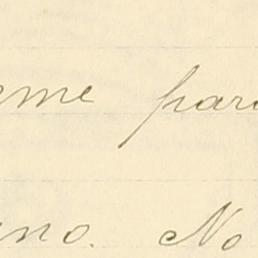 eme para
ano. No